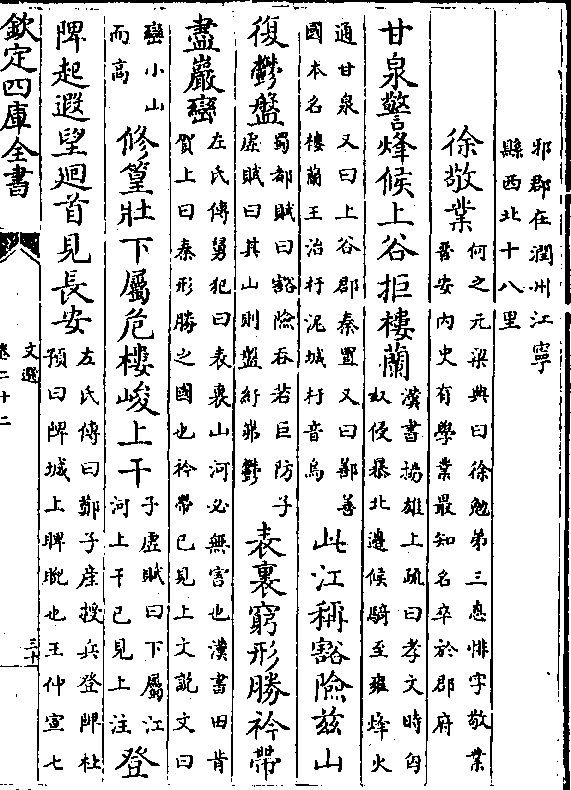 邪郡在潤州江寧
縣西北十八里
徐敬業
何之元梁典曰徐勉弟三息悱字敬業
晉安內史有學業最知名卒於郡府
甘泉警烽候上谷拒樓蘭
漢書揚雄上疏曰孝文時匈
奴侵暴北邊候騎至雍烽火
通甘泉又曰上谷郡秦置又曰鄯善
國本名樓蘭王治扜泥城扜音烏
此江稱豁險茲山
復鬱盤
蜀都賦曰豁險吞若巨防子
虛賦曰其山則盤紆岪鬱
表裏窮形勝衿帶
盡巖巒
左氏傳舅犯曰表裏山河必無害也漢書田肯
賀上曰秦形勝之國也衿帶已見上文說文曰
巒小山
而高
修篁壯下屬危樓峻上干
子虛賦曰下屬江
河上干已見上注
登
陴起遐望迴首見長安
左氏傳曰鄭子產授兵登陴杜
預曰陴城上睥睨也王仲宣七
欽定四庫全書
文選
卷二十二
三十